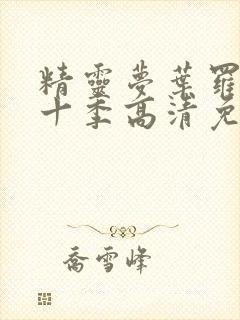 精靈夢葉羅
十季高清免
喬雪峰